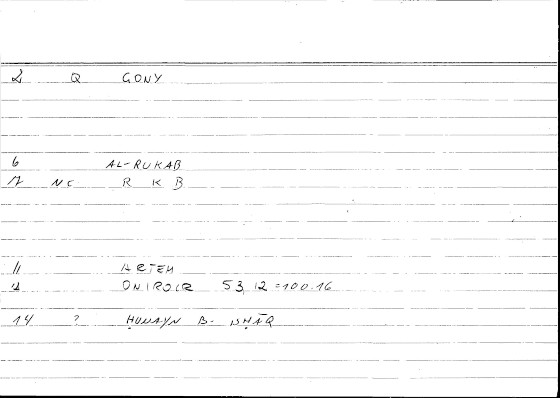 2 Q GONY
6 AL-RUKAB
12 NC R K B
11 ARTEM
ONIROCR 53,12=100.16
14 ? ḤUNAYN B- ISḤĀQ